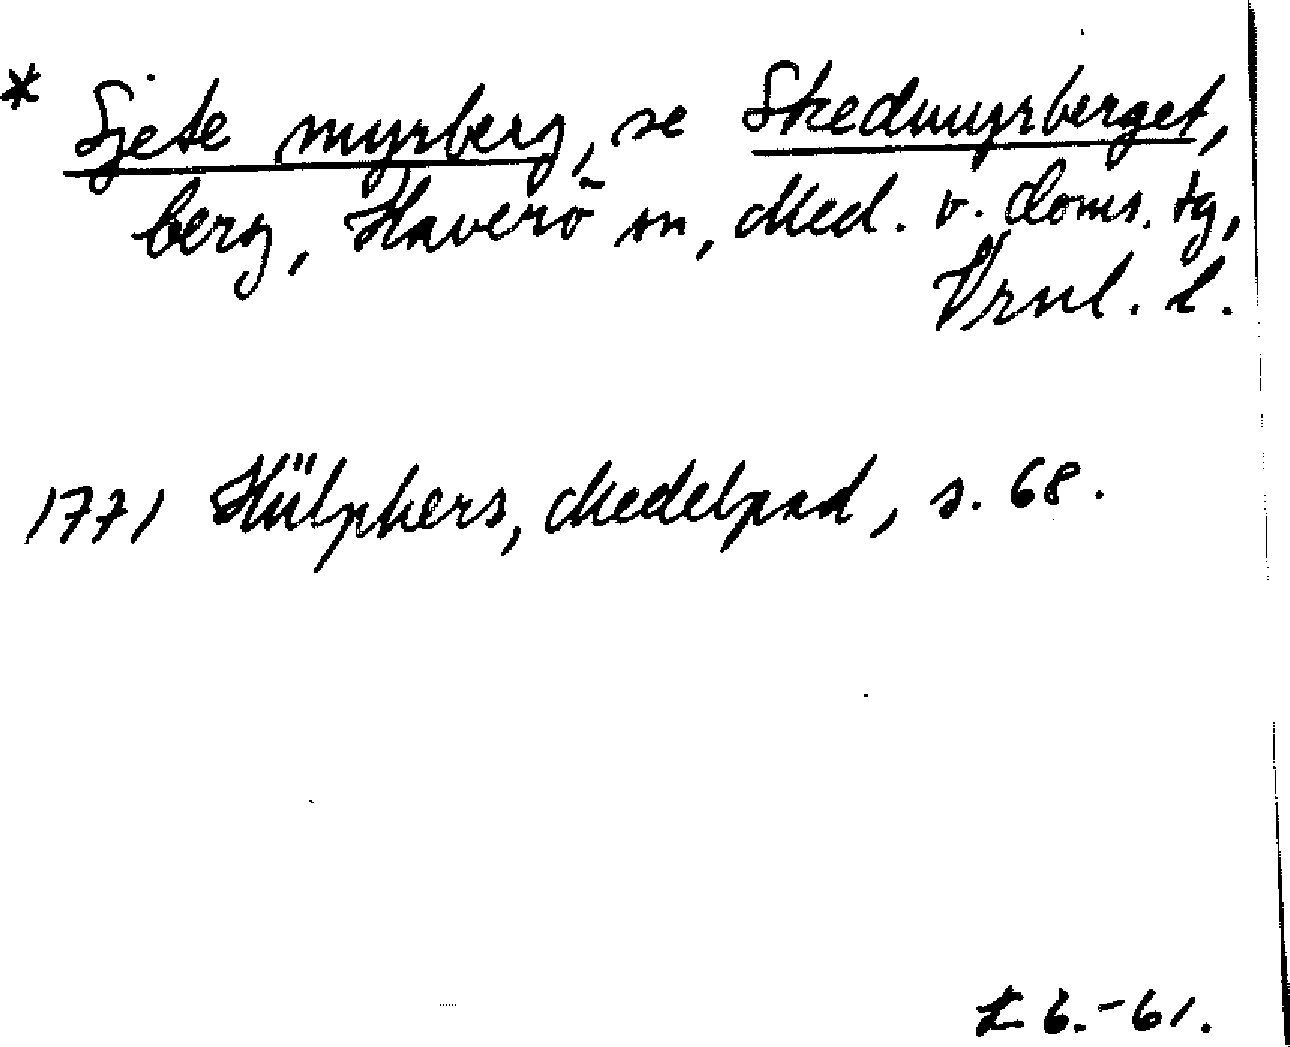 * Sjete myrberg, se Skedmyrberget,
berg, Haverö sn, Med. v. doms. tg,
Vrnl. l.
1771 Hülphers, Medelpad, s. 68.
L B.-61.